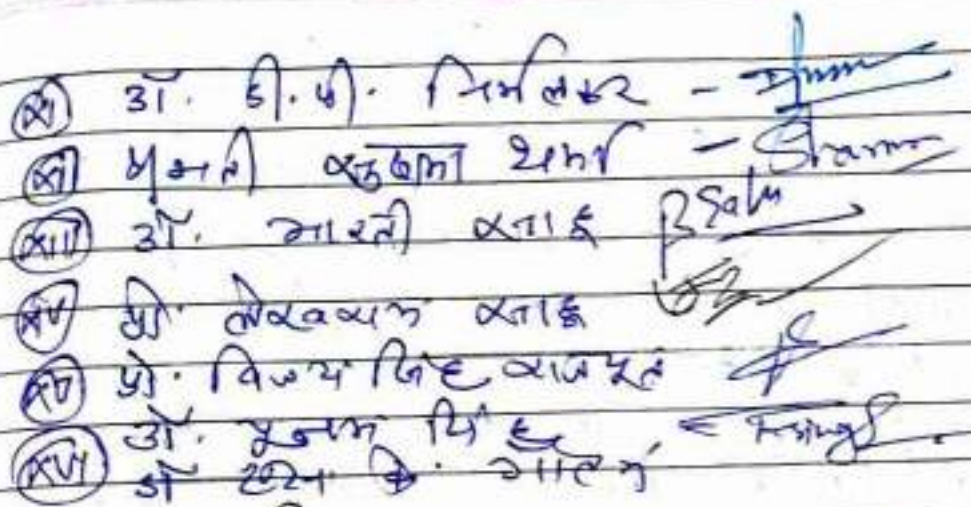 (xi) डॉ. डी.पी. निर्मलकर - 
(xii) श्रीमती सुषमा शर्मा - Sharma
(xiii) डॉ. भारती साहू BSahu
(xiv) प्रो. लेखराम साहू
(xv) प्रो. विजय सिंह राजपूत
(xvi) डॉ. पूनम सिंह
डॉ